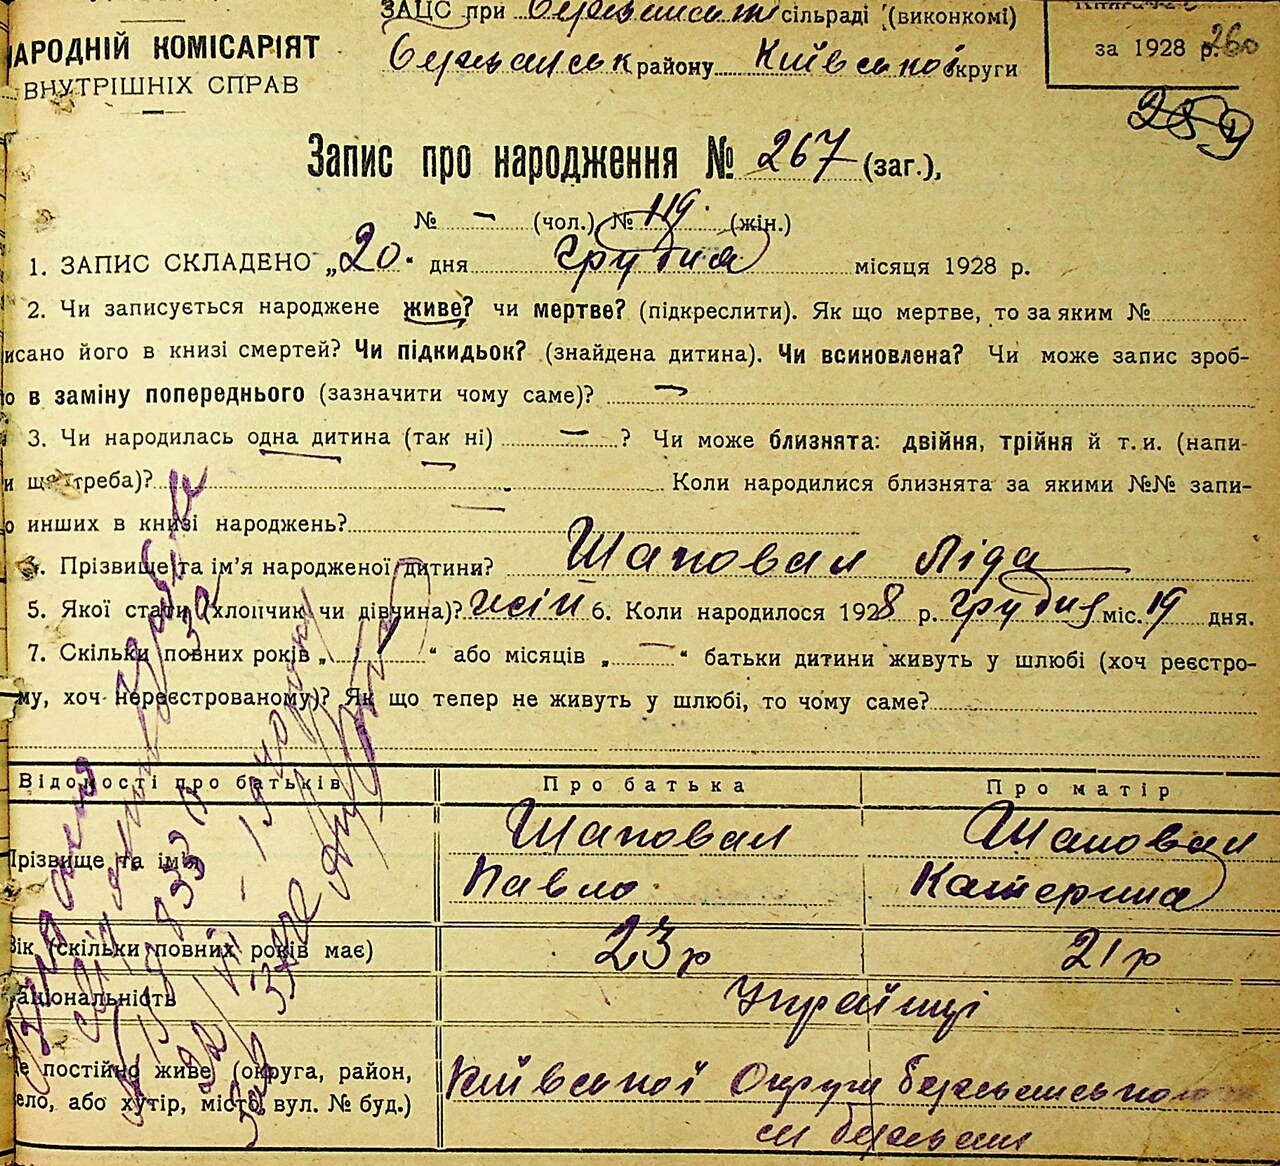 ЗАЦС при сільраді (виконкомі)
НАРОДНІЙ КОМІСАРІЯТ
ВНУТРІШНІХ СПРАВ
району Київської округи
за 1928 р. 260
259
Запис про народження № 267 (заг.),
№ – (чол.) № 119 (жін.)
1. ЗАПИС СКЛАДЕНО „20" дня грудня місяця 1928 р.
2. Чи записується народжене живе? чи мертве? (підкреслити). Як що мертве, то за яким №
исано його в книзі смертей? Чи підкидьок? (знайдена дитина). Чи всиновлена? Чи може запис зроб-
о в заміну попереднього (зазначити чому саме)? –
3. Чи народилась одна дитина (так ні) – ? Чи може близнята: двійня, трійня й т. и. (напи-
и що треба)? Коли народилися близнята за якими №№ запи-
о инших в книзі народжень?
4. Прізвище та ім'я народженої дитини? Шаповал Ліда
5. Якої стати (хлопчик чи дівчина)? жін 6. Коли народилося 1928 р. грудня міс. 19 дня.
7. Скільки повних років „ 1 " або місяців „ – " батьки дитини живуть у шлюбі (хоч реєстро-
му, хоч нереєстрованому)? Як що тепер не живуть у шлюбі, то чому саме?
Відомості про батьків Про батька Про матір
Прізвище та ім'я Шаповал Шаповал
Павло Катерина
Вік (скільки повних років має) 23 р 21 р
Національність Українці
е постійно живе (округа, район, Київської Округи
ело, або хутір, місто, вул. № буд.)